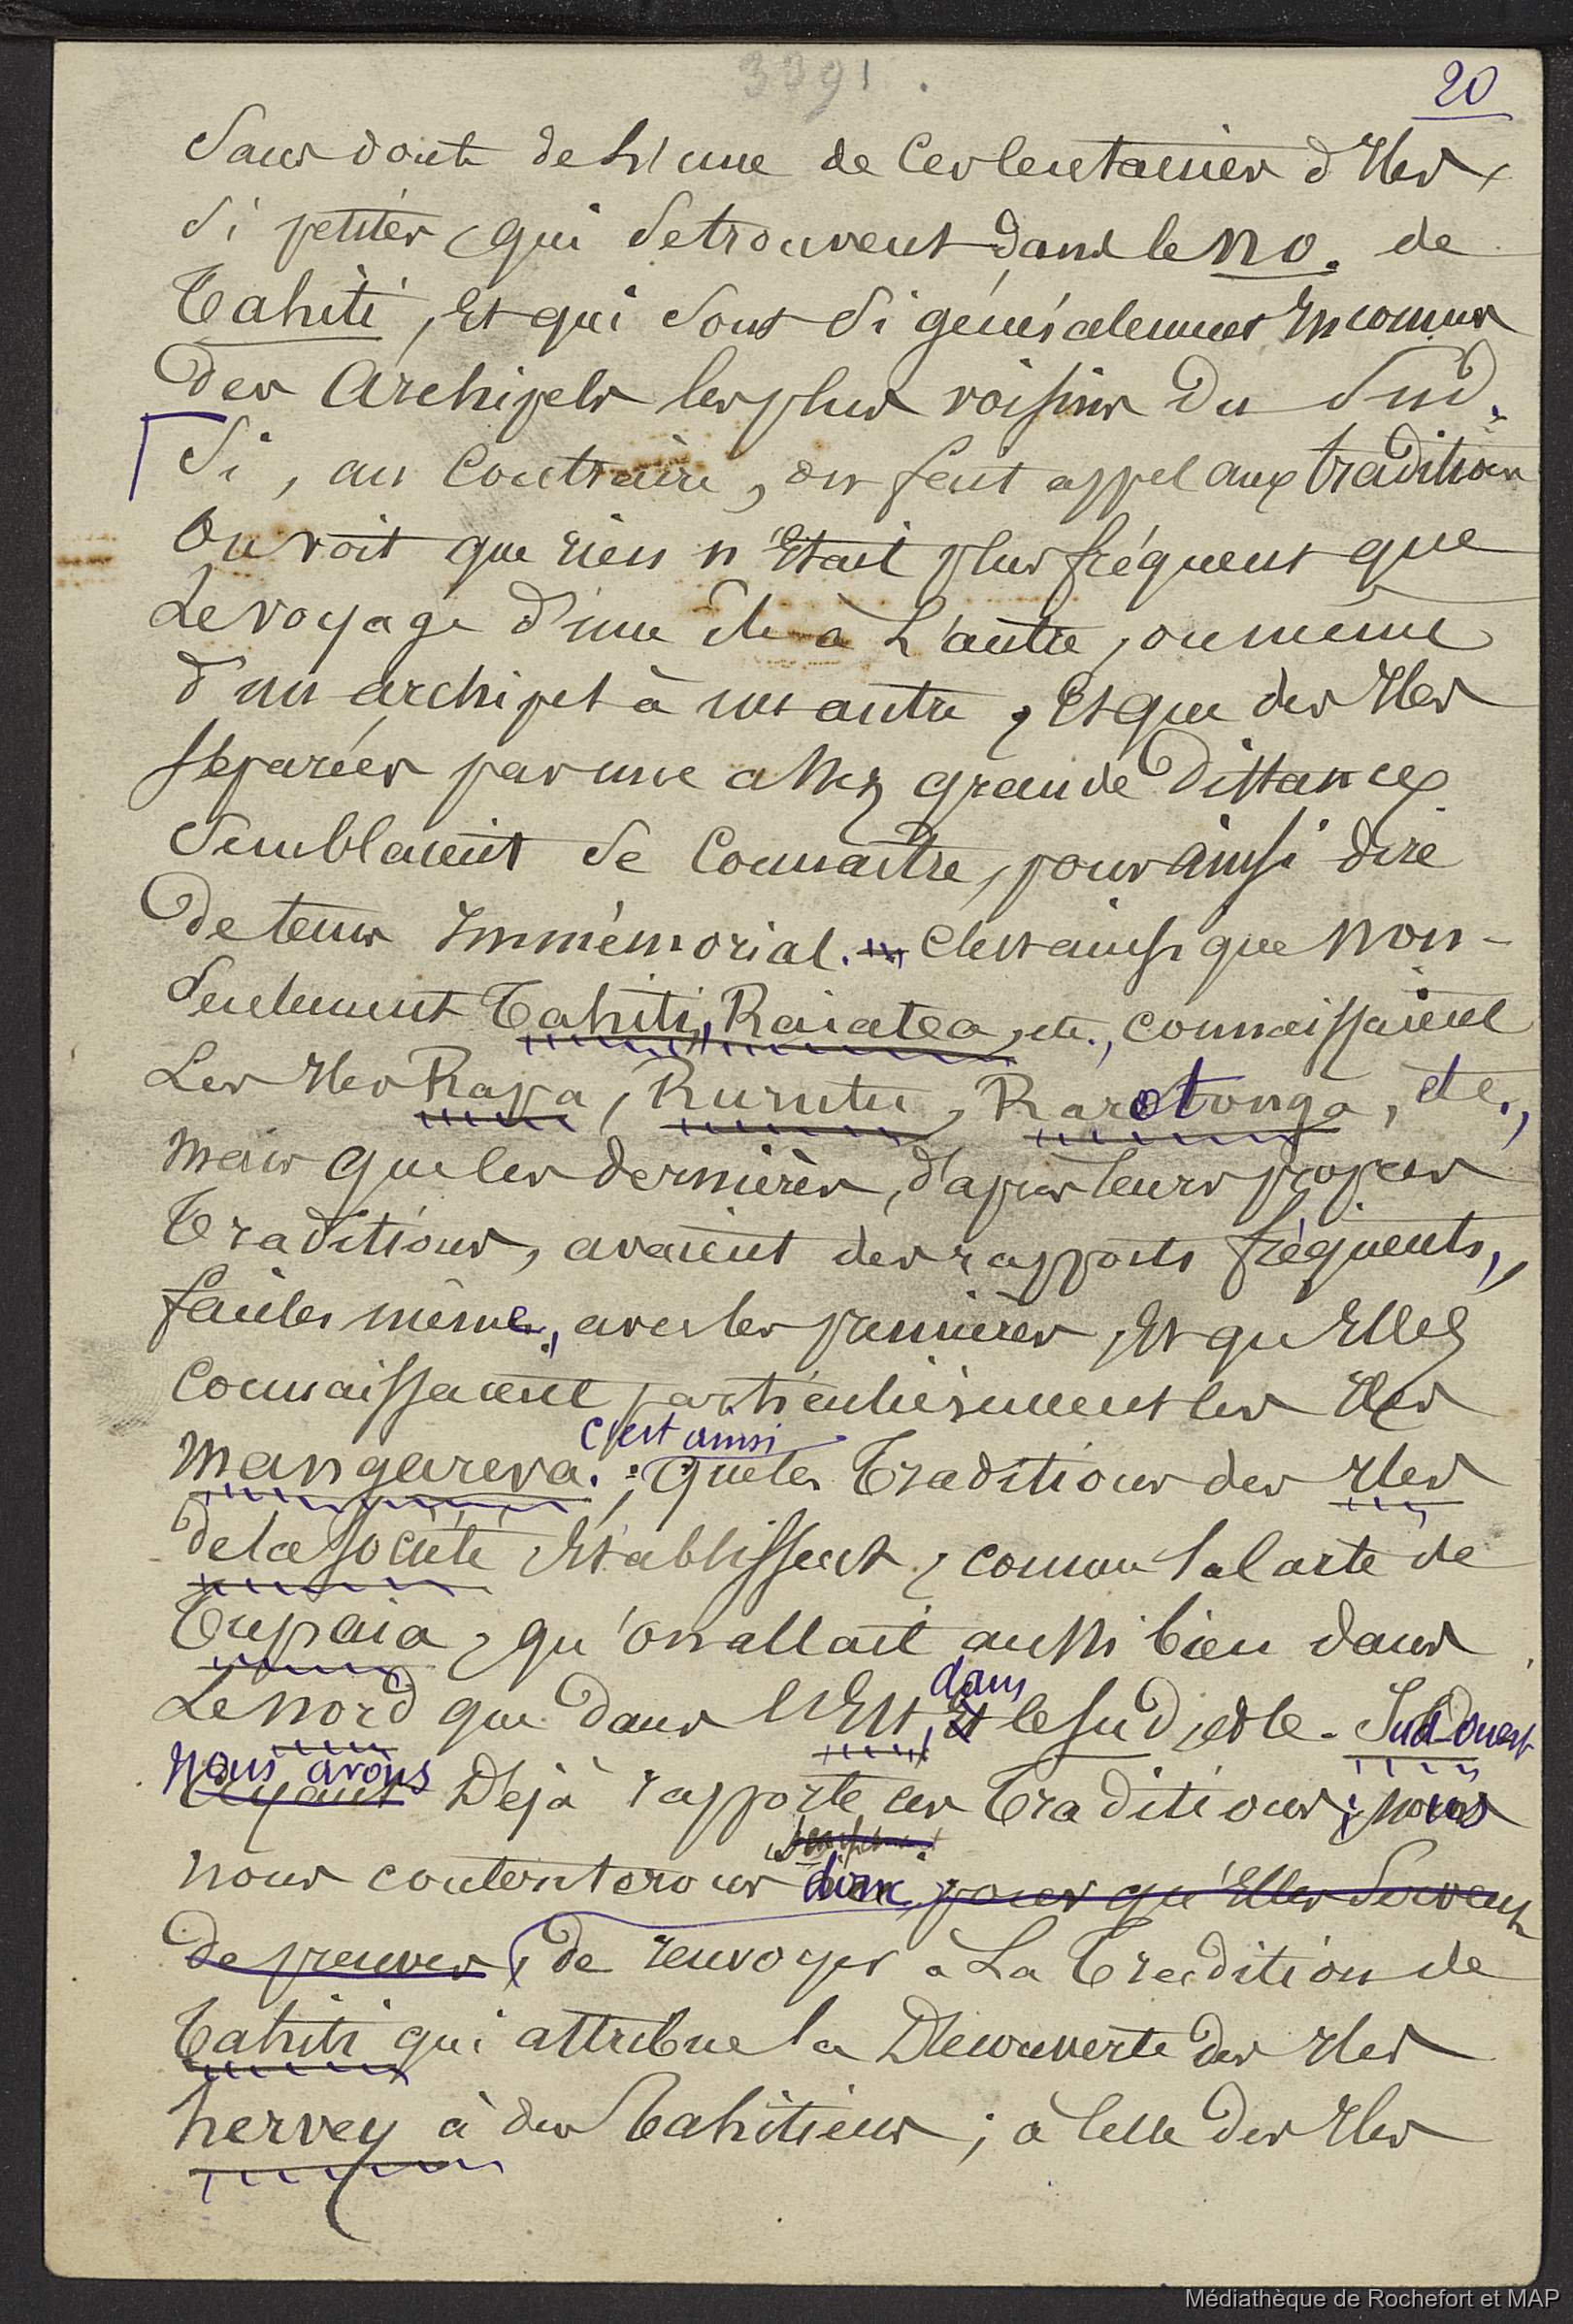 3391.
20
Sans doute de l'une de ces centaines d'Iles
Si petites, qui se trouvent dans le no. de
Tahiti, Et qui sont si généralement Inconnus
des Archipels les plus voisins du Sud.
Si, au Contraire, on fait appel aux traditions
On voit que rien n'Etait plus fréquent que
Le voyage d'une île à L'autre, ou même
d'un archipel à un autre, Et que des Iles
séparées par une assez grande Distance
Semblaient se Connaître, pour ainsi dire
De tems Immémorial. C'est ainsi que non-
Seulement Tahiti, Raiatea, etc., connaissaient
Les Iles Rapa, Rurutu, Rarotonga, etc.,
mais que les dernières, d'après leurs propres
Traditions, avaient des rapports fréquents,
faciles même, avec les premières, Et qu'Elles
Connaissaient particulièrement les Iles
c'est ainsi
Mangareva. ; que les Traditions des Iles
de la Société Etablissent, comme la carte de
Tupaia, qu'on allait aussi bien dans
dans
Le nord que dans l'Est, Et le Sud, et le Sud-Ouest
nous avons
Ayant Déjà rapporté ces Traditions ; nous
nous contenterons donc, pour qu'Elles Servent
de preuves, de renvoyer à La Tradition de
Tahiti qui attribue la Découverte des Iles
hervey à des Tahitiens ; à celle des Iles
Médiathèque de Rochefort et MAP